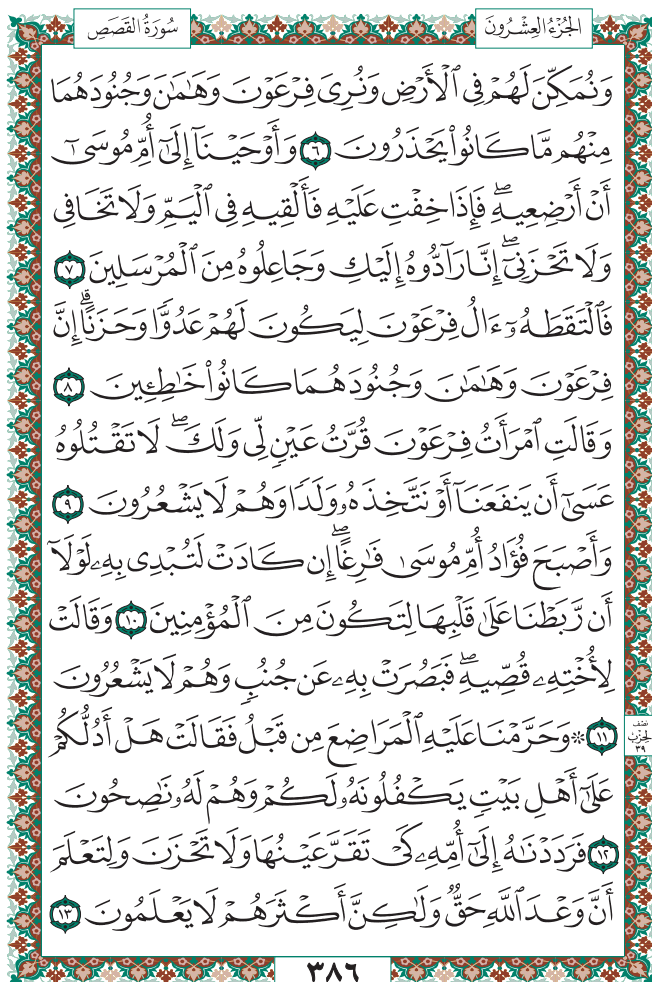 الجُزْءُ العِشْرُونَ
سُورَةُ القَصَصِ
وَنُمَكِّنَ لَهُمْ فِي ٱلْأَرْضِ وَنُرِيَ فِرْعَوْنَ وَهَٰمَٰنَ وَجُنُودَهُمَا
مِنْهُم مَّا كَانُوا۟ يَحْذَرُونَ ٦ وَأَوْحَيْنَآ إِلَىٰٓ أُمِّ مُوسَىٰٓ
أَنْ أَرْضِعِيهِ ۖ فَإِذَا خِفْتِ عَلَيْهِ فَأَلْقِيهِ فِي ٱلْيَمِّ وَلَا تَخَافِي
وَلَا تَحْزَنِيٓ ۖ إِنَّا رَآدُّوهُ إِلَيْكِ وَجَاعِلُوهُ مِنَ ٱلْمُرْسَلِينَ ٧
فَٱلْتَقَطَهُۥٓ ءَالُ فِرْعَوْنَ لِيَكُونَ لَهُمْ عَدُوًّا وَحَزَنًا ۗ إِنَّ
فِرْعَوْنَ وَهَٰمَٰنَ وَجُنُودَهُمَا كَانُوا۟ خَٰطِـِٔينَ ٨
وَقَالَتِ ٱمْرَأَتُ فِرْعَوْنَ قُرَّتُ عَيْنٍ لِّي وَلَكَ ۖ لَا تَقْتُلُوهُ
عَسَىٰٓ أَن يَنفَعَنَآ أَوْ نَتَّخِذَهُۥ وَلَدًا وَهُمْ لَا يَشْعُرُونَ ٩
وَأَصْبَحَ فُؤَادُ أُمِّ مُوسَىٰ فَٰرِغًا ۖ إِن كَادَتْ لَتُبْدِي بِهِۦ لَوْلَآ
أَن رَّبَطْنَا عَلَىٰ قَلْبِهَا لِتَكُونَ مِنَ ٱلْمُؤْمِنِينَ ١٠ وَقَالَتْ
لِأُخْتِهِۦ قُصِّيهِ ۖ فَبَصُرَتْ بِهِۦ عَن جُنُبٍ وَهُمْ لَا يَشْعُرُونَ
١١ ۞ وَحَرَّمْنَا عَلَيْهِ ٱلْمَرَاضِعَ مِن قَبْلُ فَقَالَتْ هَلْ أَدُلُّكُمْ
نصف
الحزب
٣٩
عَلَىٰٓ أَهْلِ بَيْتٍ يَكْفُلُونَهُۥ لَكُمْ وَهُمْ لَهُۥ نَٰصِحُونَ
١٢ فَرَدَدْنَٰهُ إِلَىٰٓ أُمِّهِۦ كَيْ تَقَرَّ عَيْنُهَا وَلَا تَحْزَنَ وَلِتَعْلَمَ
أَنَّ وَعْدَ ٱللَّهِ حَقٌّ وَلَٰكِنَّ أَكْثَرَهُمْ لَا يَعْلَمُونَ ١٣
٣٨٦